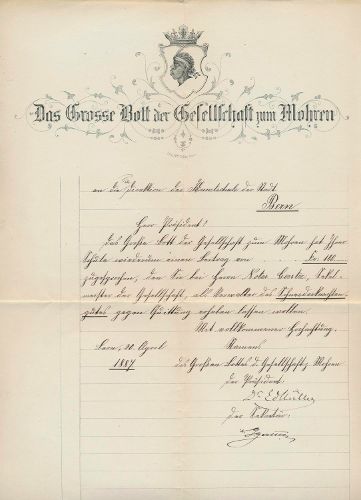 Das Grosse Bott der Gesellschaft zum Mohren
an die Direktion der Kunstschule der Stadt
Bern
Herr Präsident!
Das Große Bott der Gesellschaft zum Mohren hat Ihrer
Schule wiederum einen Beitrag von Fr. 100.
zugesprochen, den Sie bei Herrn Notar Seckel-
meister der Gesellschaft, als Verwalter des
gutes gegen Quittung erheben lassen wollen.
Mit vollkommener Hochachtung,
Bern, 20. April Namens
1887 des Großen Bottes d. Gesellschaft z. Mohren
der Präsident:
Dr. Ed Müller
der Sekretär: